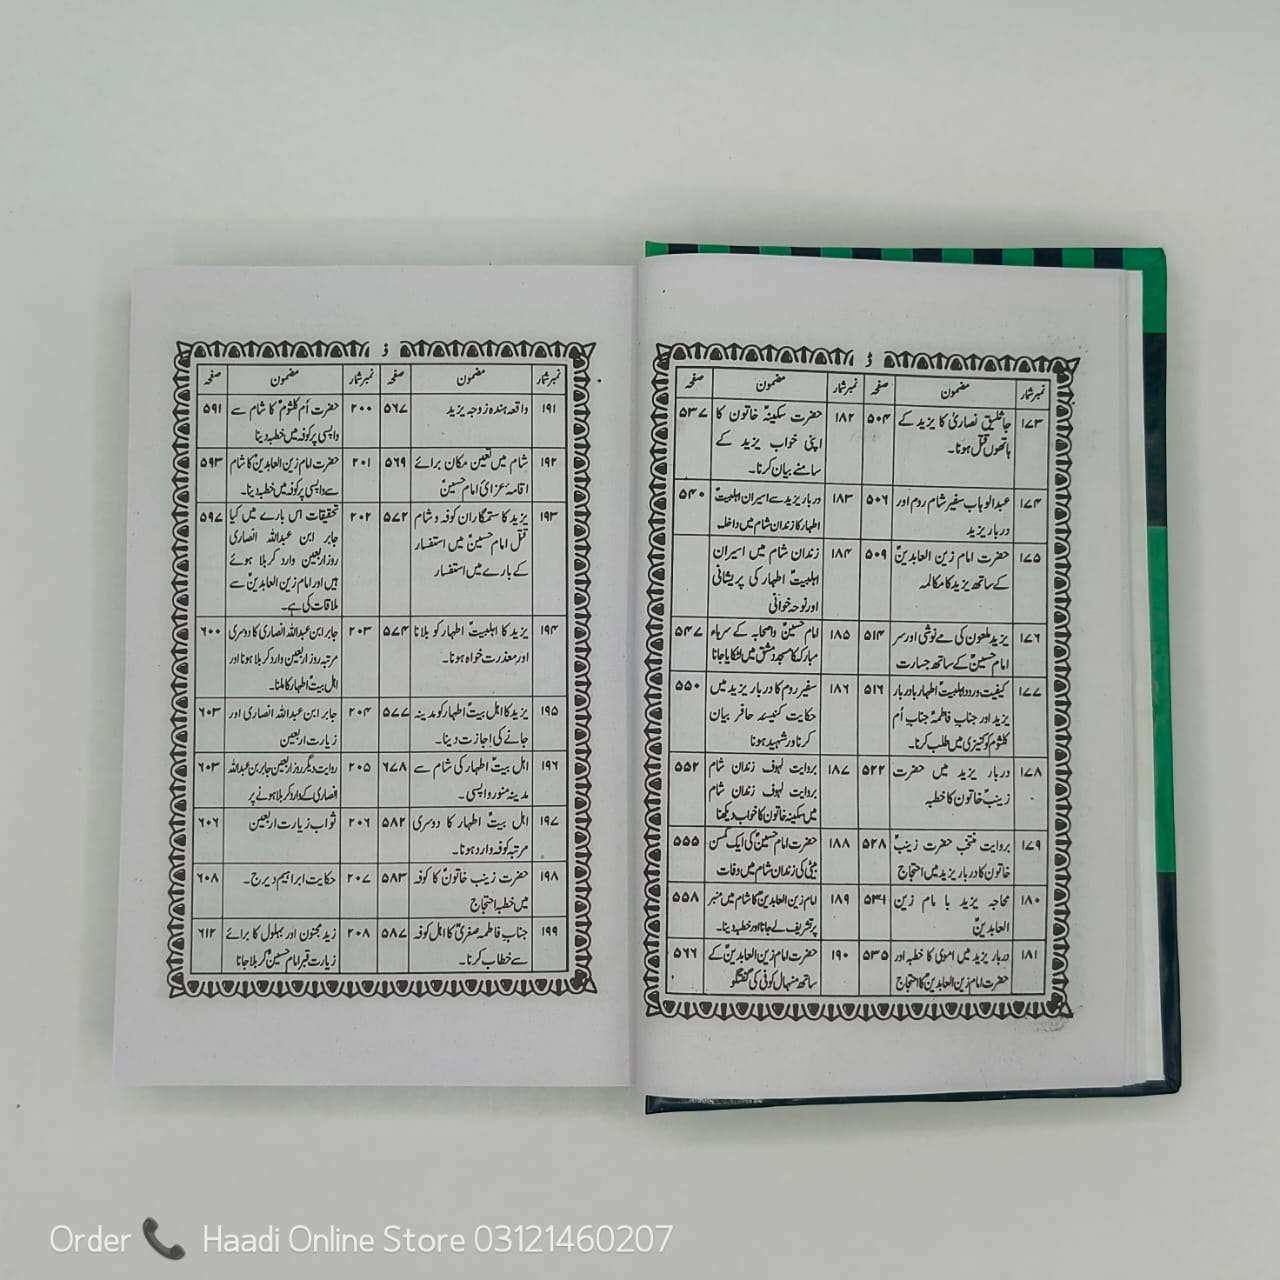 ڈ
نمبر شمار مضمون صفحہ نمبر شمار مضمون صفحہ
۱۷۳ جاثلیق نصاریٰ کا یزید کے ۵۰۴
ہاتھوں قتل ہونا۔
۱۷۴ عبدالوہاب سفیر شام روم اور ۵۰۶
دربار یزید
۱۷۵ حضرت امام زین العابدینؑ ۵۰۹
کے ساتھ یزید کا مکالمہ
۱۷۶ یزید ملعون کی مے نوشی اور سر ۵۱۴
امام حسینؑ کے ساتھ جسارت
۱۷۷ کیفیت ورود اہلبیتؑ اطہار بادربار ۵۱۶
یزید اور جناب فاطمہؑ جناب اُم
کلثومؑ کو کنیزی میں طلب کرنا۔
۱۷۸ دربار یزید میں حضرت ۵۲۲
زینبؑ خاتون کا خطبہ
۱۷۹ بروایت منتخب حضرت زینبؑ ۵۲۸
خاتون کا دربار یزید میں احتجاج
۱۸۰ محاجہ یزید با مام زین ۵۳۱
العابدینؑ
۱۸۱ دربار یزید میں اموی کا خطبہ اور ۵۳۵
حضرت امام زین العابدینؑ کا احتجاج
۱۸۲ حضرت سکینہؑ خاتون کا ۵۳۷
اپنی خواب یزید کے
سامنے بیان کرنا۔
۱۸۳ دربار یزید سے اسیران اہلبیتؑ ۵۴۰
اطہار کا زندان شام میں داخلہ
۱۸۴ زندان شام میں اسیران
اہلبیتؑ اطہار کی پریشانی
اور نوحہ خوانی
۱۸۵ امام حسینؑ واصحابہ کے سرہاء ۵۴۷
مبارک کا مسجد دمشق میں لٹکایا جانا
۱۸۶ سفیر روم کا دربار یزید میں ۵۵۰
حکایت کنیسہ حافر بیان
کرنا ور شہید ہونا
۱۸۷ بروایت لہوف زندان شام ۵۵۲
بروایت لہوف زندان شام
میں سکینہ خاتون کا خواب دیکھنا
۱۸۸ حضرت امام حسینؑ کی ایک کمسن ۵۵۵
بیٹی کی زندان شام میں وفات
۱۸۹ امام زین العابدینؑ کا شام میں منبر ۵۵۸
پر تشریف لے جانا اور خطبہ دینا۔
۱۹۰ حضرت امام زین العابدینؑ کے ۵۶۶
ساتھ منہال کوفی کی گفتگو
ذ
نمبر شمار مضمون صفحہ نمبر شمار مضمون صفحہ
۱۹۱ واقعہ ہندہ زوجہ یزید ۵۶۷
۱۹۲ شام میں تعین مکان برائے ۵۶۹
اقامۂ عزائ امام حسینؑ
۱۹۳ یزید کا ستمگاران کوفہ و شام ۵۷۲
قتل امام حسینؑ میں استفسار
کے بارے میں استفسار
۱۹۴ یزید کا اہلبیتؑ اطہار کو بلانا ۵۷۴
اور معذرت خواہ ہونا۔
۱۹۵ یزید کا اہل بیتؑ اطہار کو مدینہ ۵۷۷
جانے کی اجازت دینا۔
۱۹۶ اہل بیتؑ اطہار کی شام سے ۶۷۸
مدینہ منور واپسی۔
۱۹۷ اہل بیتؑ اطہار کا دوسری ۵۸۲
مرتبہ کوفہ وارد ہونا۔
۱۹۸ حضرت زینب خاتونؑ کا کوفہ ۵۸۳
میں خطبہ احتجاج
۱۹۹ جناب فاطمہ صغریٰؑ کا اہل کوفہ ۵۸۷
سے خطاب کرنا۔
۲۰۰ حضرت اُم کلثومؑ کا شام سے ۵۹۱
واپسی پر کوفہ میں خطبہ دینا
۲۰۱ حضرت امام زین العابدینؑ کا شام ۵۹۳
سے واپسی پر کوفہ میں خطبہ دینا۔
۲۰۲ تحقیقات اس بارے میں کیا ۵۹۷
جابر ابن عبداللہ انصاری
روز اربعین وارد کربلا ہوئے
ہیں اور امام زین العابدینؑ سے
ملاقات کی ہے۔
۲۰۳ جابر ابن عبداللہ انصاری کا دوسری ۶۰۰
مرتبہ روز اربعین وارد کربلا ہونا اور
اہل بیتؑ اطہار کا ملنا۔
۲۰۴ جابر ابن عبداللہ انصاری اور ۶۰۳
زیارت اربعین
۲۰۵ روایت دیگر روز اربعین جابر بن عبداللہ ۶۰۳
انصاری کے وارد کربلا ہونے پر
۲۰۶ ثواب زیارت اربعین ۶۰۶
۲۰۷ حکایت ابراہیم دیرج۔ ۶۰۸
۲۰۸ زید مجنون اور بہلول کا برائے ۶۱۲
زیارت قبر امام حسینؑ کربلا جانا
Order Haadi Online Store 03121460207